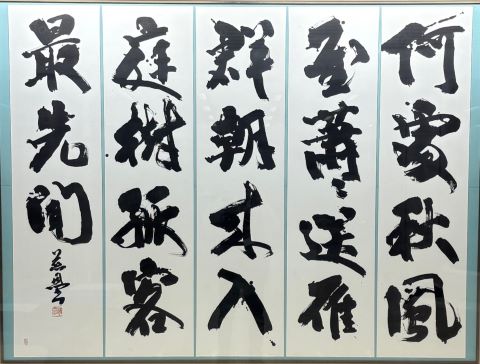 何處秋風
至蕭〻送雁
群朝来入
庭樹孤客
最先聞